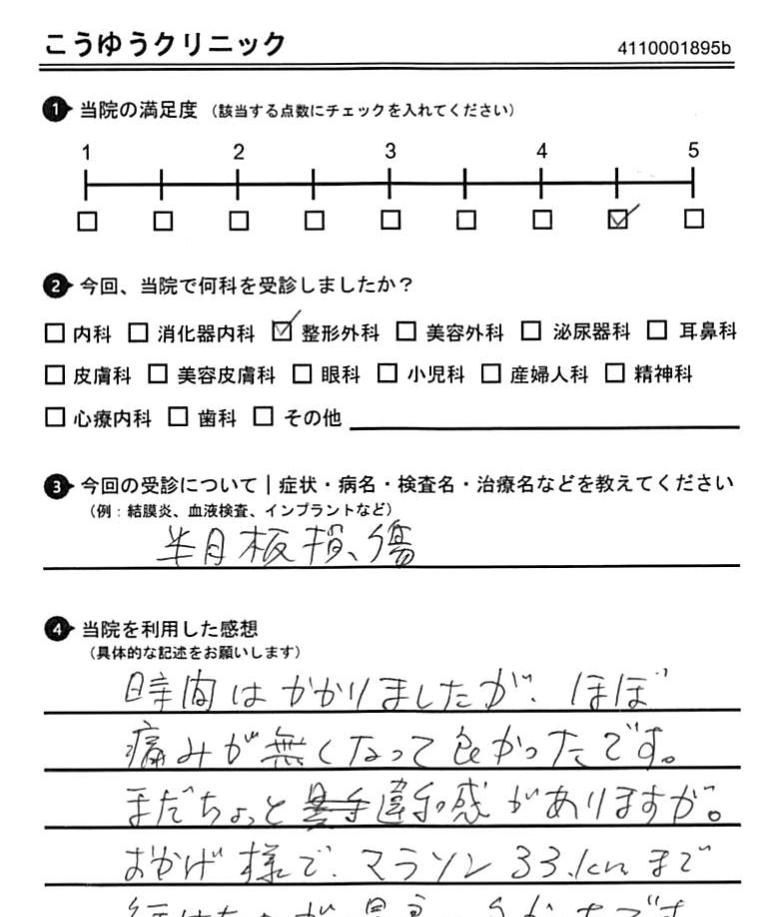 こうゆうクリニック 4110001895b
1 当院の満足度 (該当する点数にチェックを入れてください)
1 2 3 4 5
2 今回、当院で何科を受診しましたか?
内科 消化器内科 整形外科 美容外科 泌尿器科 耳鼻科
皮膚科 美容皮膚科 眼科 小児科 産婦人科 精神科
心療内科 歯科 その他
3 今回の受診について | 症状・病名・検査名・治療名などを教えてください
(例:結膜炎、血液検査、インプラントなど)
半月板損傷
4 当院を利用した感想
(具体的な記述をお願いします)
時間はかかりましたが、ほぼ
痛みが無くなって良かったです。
まだちょっと違和感がありますが。
おかげ様で、マラソン33.kmまで